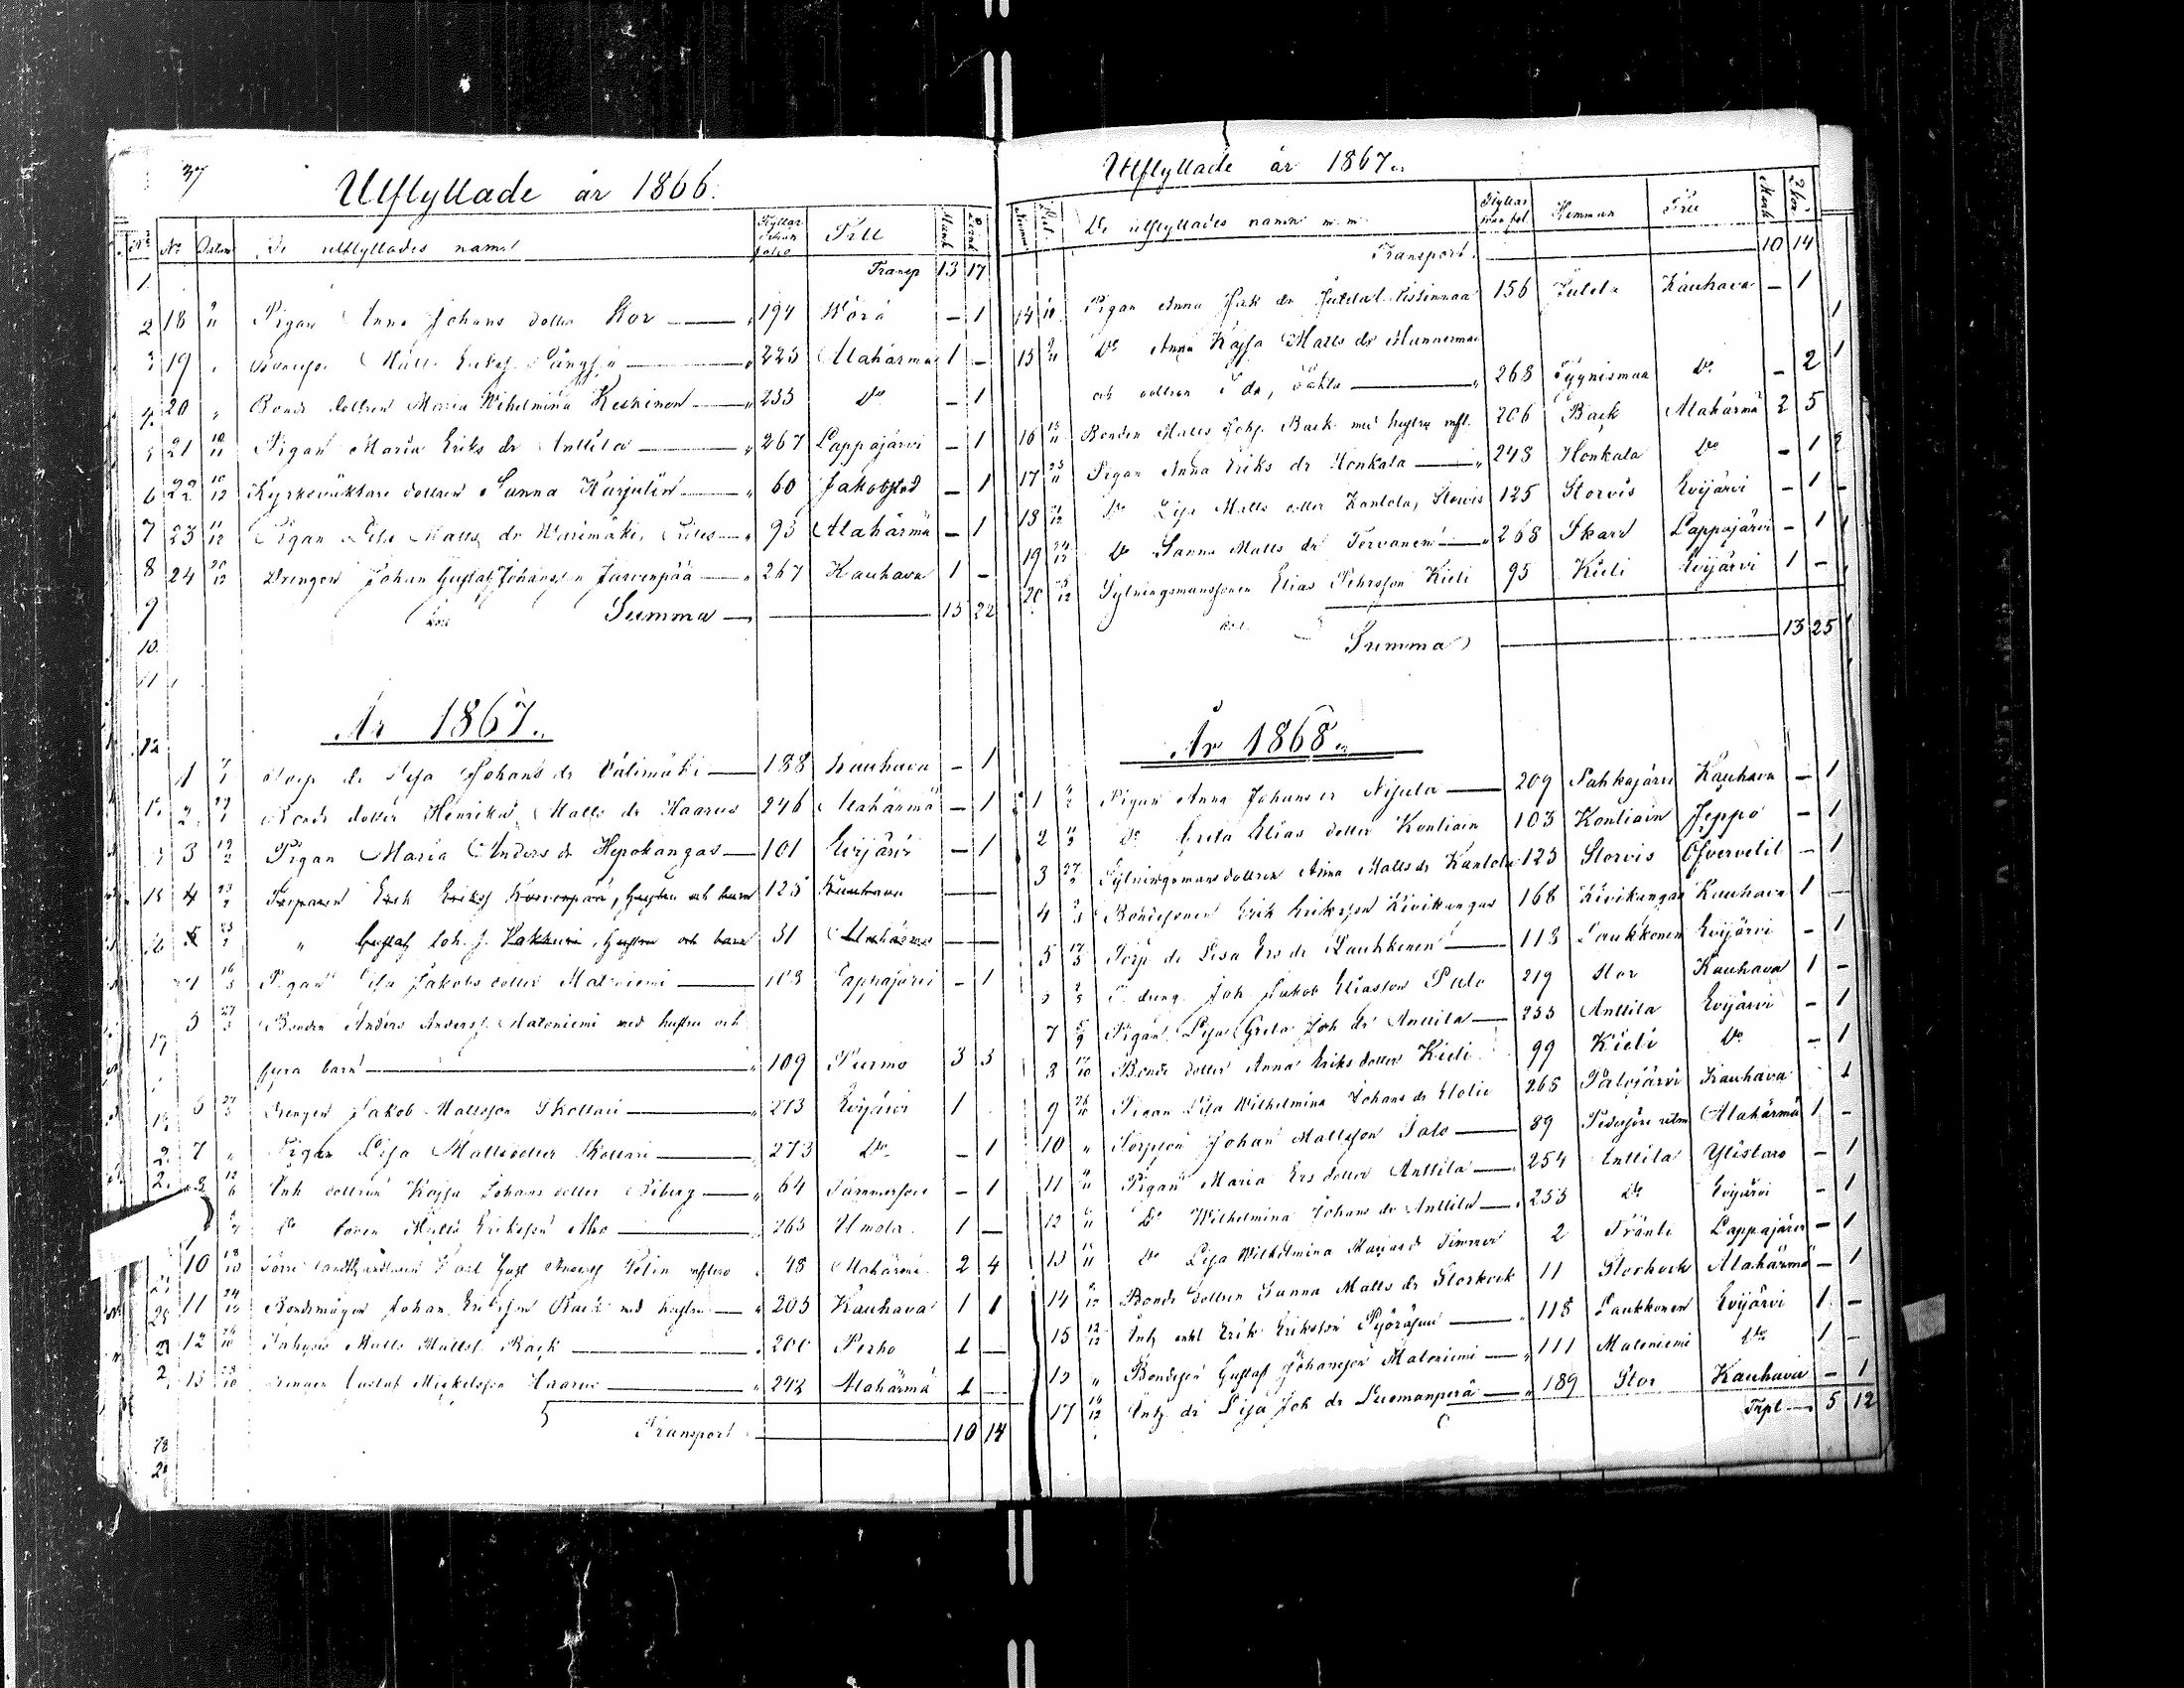 37
Utflyttade år 1866.
No Datum De utflyttades namn Till
Transp 13 17
18 Pigan Anna Johans dotter Stor 194 Wörå — 1
19 " Matts 223 Alahärmä 1 —
20 " Bonde dottren Maria Wilhelmina Keskinen 233 Do — 1
21 Pigan Maria Eriks dr Anttila 267 Lappajärvi — 1
22 Kyrkovaktare dottren Sanna Karjulin 60 Jakobstad — 1
23 Pigan Lisa Matts dr Warimäki 95 Alahärmä — 1
24 Drengen Johan Gustaf Johansson Jarvenpää 267 Kauhava 1 —
Summa 15 22
År 1867.
1 Torp dr Lisa Johans dr Välimäki 188 Kauhava — 1
2 Bonde dotter Henrika Matts dr Haarus 246 Alahärmä — 1
3 Pigan Maria Anders dr Hepokangas 101 Evijärvi — 1
4 Torparen Erik Eriksf , hustru och barn 125 Kauhava —
5 " Gustaf Joh. f. , hustru och barn 31 Alahärmä —
4 Pigan Lisa Jakobs dotter Matoniemi 103 Lappajärvi — 1
5 Bonden Anders Andersf. Matoniemi med hustru och
fyra barn 109 Purmo 3 3
6 Drengen Jakob Mattsson Skottari 273 Evijärvi 1
7 " Pigan Lisa Mattsdotter Skottari 273 Do — 1
Inh dottren Kajsa Johans dotter 64 Tammerfors — 1
Do sonen Matts Eriksson Aho 263 Umola 1 —
10 48 Alahärmä 2 4
11 Bondemågen Johan Eriksson Back med hustru 205 Kauhava 1 1
12 Inhyses Matts Mattsf. Back 200 Perho 1 —
13 Drengen Gustaf Mickelsson Haarus 242 Alahärmä 1 —
Transport 10 14
Utflyttade år 1867.
De utflyttades namn m. m. Hemman Till
Transport. 10 14
14 Pigan Anna Jak dr Jutila 156 Jutila Kauhava — 1
15 Do Anna Kajsa Matts dr Mannermaa
och dottren Ida, oäkta 268 Tyynismaa Do — 2
16 Bonden Matts Johs. Back med hustru 206 Back Alahärmä 2 5
17 Pigan Anna Eriks dr Honkala 248 Honkala Do — 1
18 Do Lisa Matts dotter Kantola, Storvis 125 Storvis Evijärvi — 1
19 Do Sanna Matts dr Tervonen 268 Skarv Lappajärvi — 1
20 Sytningsmanssonen Elias Pehrsson Kieli 95 Kieli Evijärvi 1 —
Summa 13 25
År 1868.
1 Pigan Anna Johans dr Nisula 209 Pahkajärvi Kauhava — 1
2 Do Greta Elias dotter Kontiain 103 Kontiain Jeppo — 1
3 Sytningsmans dottren Anna Matts dr Kantola 125 Storvis Öfvervetil — 1
4 Bondesonen Erik Eriksson Kivikangas 168 Kivikangas Kauhava 1 —
5 Torp dr Lisa Ers dr Laukkonen 113 Laukkonen Evijärvi — 1
6 dreng. Joh. Jakob Eliasson Palo 219 Stor Kauhava 1 —
7 Pigan Lisa Greta Joh dr Anttila 253 Anttila Evijärvi — 1
8 Bonde dotter Anna Eriks dotter Kieli 99 Kieli Do — 1
9 Pigan Lisa Wilhelmina Johans dr 265 Palojärvi Kauhava 1
10 " Torpson Johan Mattsson Salo 89 Alahärmä 1 —
11 Pigan Maria Ers dotter Anttila 254 Anttila Ylistaro — 1
12 Do Wilhelmina Johans dr Anttila 253 Do Evijärvi — 1
13 Do Lisa Wilhelmina 2 Lappajärvi — 1
14 Bonde dottren Sanna Matts dr Storkock 11 Storkock Alahärmä — 1
15 Erik Eriksson 118 Laukkonen Evijärvi 1 —
" Bondeson Gustaf Johansson Matoniemi 111 Matoniemi Do 1 —
17 Inh dr Lisa Joh dr Luomanperä 189 Stor Kauhava — 1
Trpt 5 12